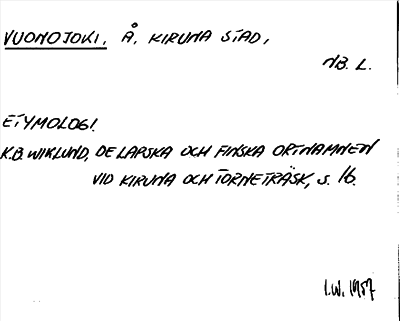 VUONOJOKI, Å, KIRUNA STAD,
NB. L.
ETYMOLOGI.
K.B. WIKLUND, DE LAPSKA OCH FINSKA ORTNAMNEN
VID KIRUNA OCH TORNETRÄSK, S. 16.
I.W. 1957